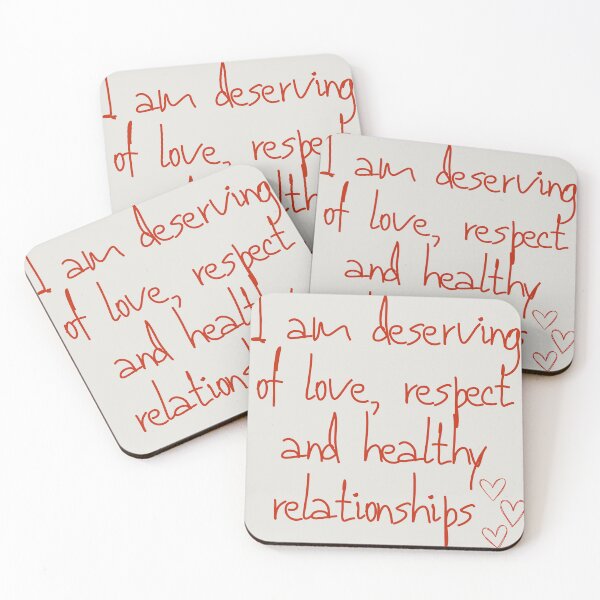 I am deserving
of love, respect
I am deserving
of love, respect
and healthy
I am deserving
of love, respect
and
I am deserving
of love, respect
and healthy
relationships